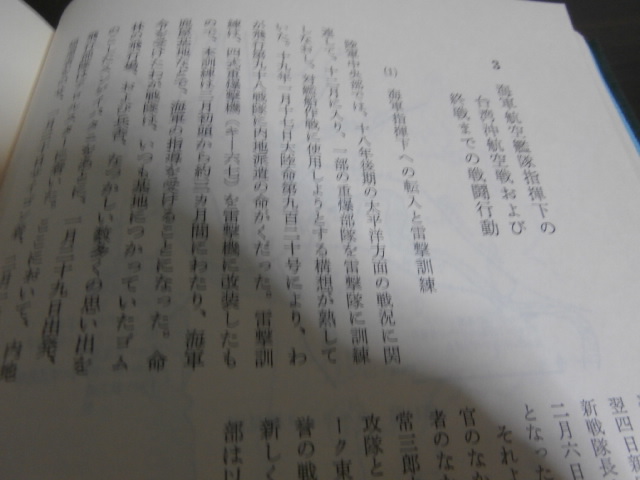 3 海軍航空艦隊指揮下の
台湾沖航空戦および
終戦までの戦闘行動
(1) 海軍指揮下への転入と雷撃訓練
陸軍中央部では、十八年後期の太平洋方面の戦況に関
連して、十二月に入り、一部の重爆部隊を雷撃隊に訓練
しなおし、対艦船作戦に使用しようとする構想が熟して
いた。十九年一月十七日大陸命第九百二十号により、わ
が飛行第九十八戦隊に内地派遣の命がくだった。雷撃訓
練は、四式重爆撃機(キー六七)を雷撃機に改装したも
ので、本訓練は二月初頭から約三ヵ月間にわたり、海軍
鹿屋基地などで、海軍の指導を受けることになった。命
令を受けたわが戦隊は、いつも基地につかっていたゴム
林の飛行場、および兵舎、なつかしい数多くの思い出を
一月二十九日出発、
内地
翌四日新
新戦隊長
二月六日
となった
それよ
官のなか
者のなか
常三郎
攻隊と
ーク東
誉の戦
新しく
部は以